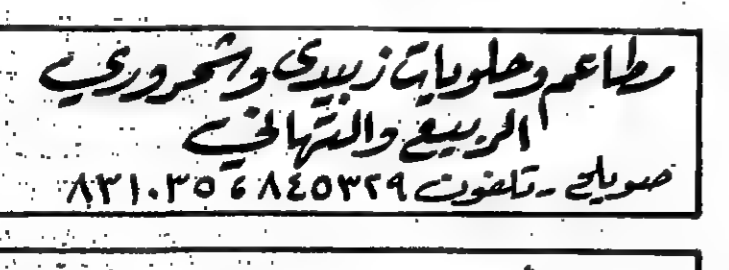 مطاعم وحلويات زبيدي وشحروري
الربيع والتهاني
صويلح - تلفون ٨٤٥٣٢٩ ، ٨٣١٠٣٥